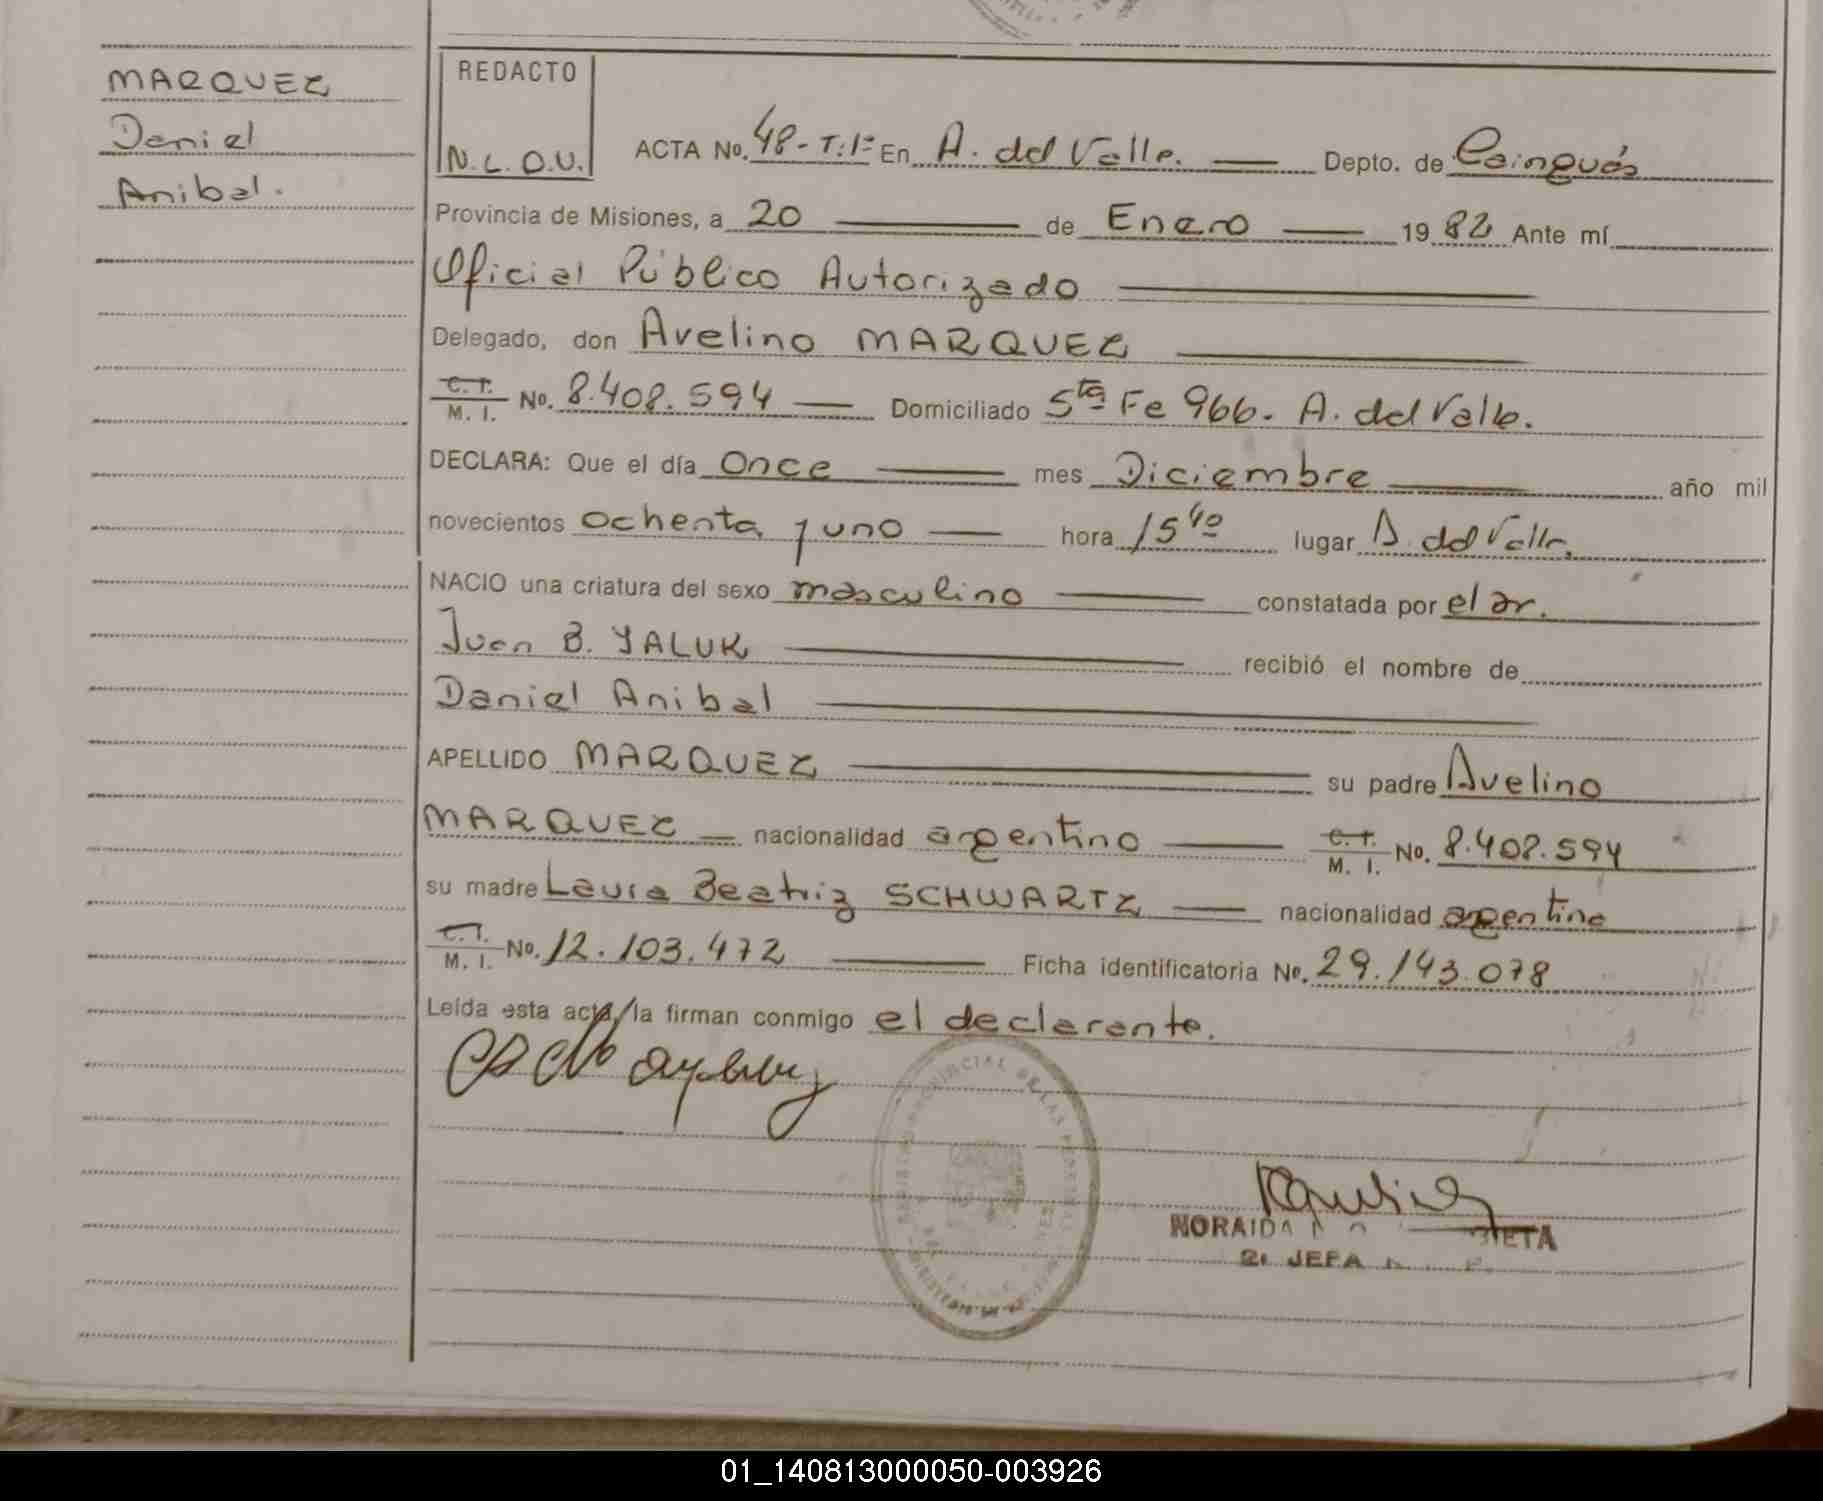 MARQUEZ
Daniel
Anibal.
REDACTO
N.L.O.U.
ACTA No. 48-T:1º En A. del Valle. Depto. de Cainguás
Provincia de Misiones, a 20 de Enero 1982 Ante mí
Oficial Público Autorizado
Delegado, don Avelino MARQUEZ
C. I. M. I. No. 8.408.594 Domiciliado Sta Fe 966. A. del Valle.
DECLARA: Que el día Once mes Diciembre año mil
novecientos ochenta y uno hora 15 40 lugar A. del Valle.
NACIO una criatura del sexo masculino constatada por el Dr.
Juan B. YALUK recibió el nombre de
Daniel Anibal
APELLIDO MARQUEZ su padre Avelino
MARQUEZ nacionalidad argentino C. I. M. I. No. 8.408.594
su madre Laura Beatriz SCHWARTZ nacionalidad argentina
C. I. M. I. No. 12.103.472 Ficha identificatoria No. 29.143.078
Leída esta acta, la firman conmigo el declarante.
PROVINCIAL DE LAS
NORAIDA
JEFA
01_140813000050-003926